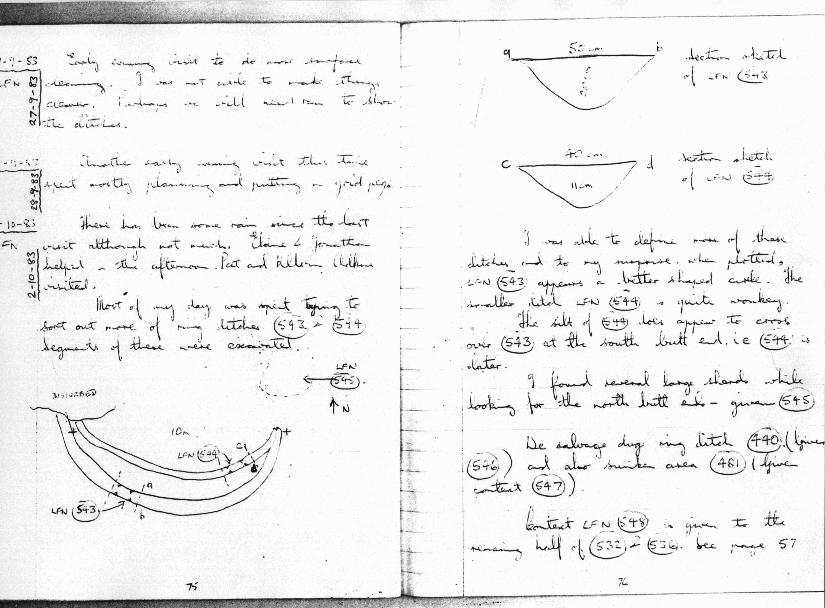 27-9-83
LFN
Early evening visit to do more surface
cleaning. I was not able to make things
clearer. Perhaps we will need rain to show
the ditches.
28-9-83
Another early evening visit this time
spent mostly planning and putting in grid pegs.
2-10-83
LFN
There has been some rain since the last
visit although not much. Elaine & Jonathan
helped in the afternoon. Pat and
visited.
Most of my day was spent trying to
sort out more of ring ditches 543 & 544
segments of these were excavated.
LFN
545.
N
DISTURBED
10m
LFN 544
c
d
a
b
LFN 543
75
a 50cm b
section sketch
of LFN 543
c 40cm d
11cm
section sketch
of LFN 544
I was able to define more of these
ditches and to my surprise, when plotted,
LFN 543 appears a better shaped circle. The
smaller ditch LFN 544 is quite wonkey.
The silts of 544 does appear to cross
over 543 at the south butt end. i.e 544 is
later.
I found several large sherds while
looking for the north butt ends - given 545
We salvage dug ring ditch 440 (given
546) and also sunken area 461 (given
context 547).
Context LFN 548 is given to the
remaining half of 532 & 536. See page 57
76